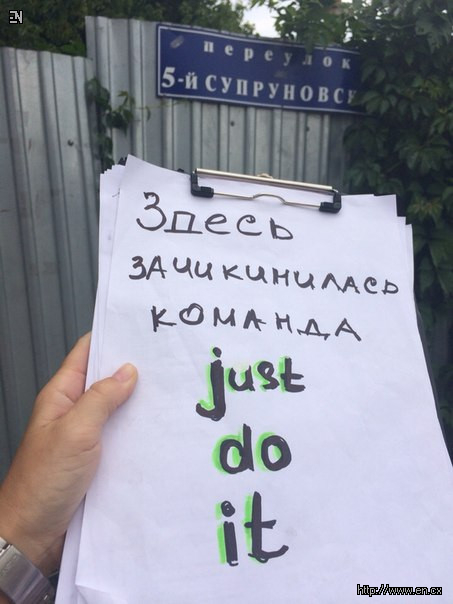 EN
переулок
5-й СУПРУНОВСК
Здесь
ЗАЧИКИНИЛАСЬ
КОМАНДА
just
do
it
http://www.en.cx